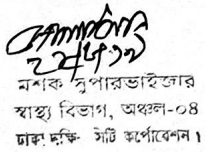 মশক সুপারভাইজার
স্বাস্থ্য বিভাগ, অঞ্চল-০৪
ঢাকা দক্ষিণ সিটি কর্পোরেশন।